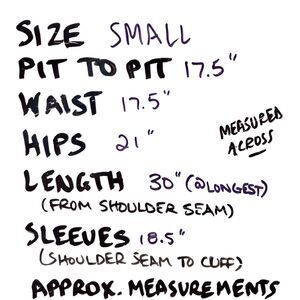 SIZE SMALL
PIT TO PIT 17.5"
WAIST 17.5"
HIPS 21"
MEASURED
ACROSS
LENGTH 30" (@LONGEST)
(FROM SHOULDER SEAM)
SLEEVES 18.5"
(SHOULDER SEAM TO CUFF)
APPROX. MEASUREMENTS